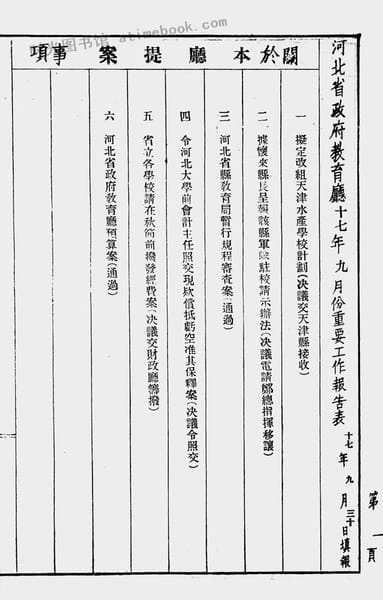 图书馆 - atimebook.com
第一頁
河北省政府教育廳十七年九月份重要工作報告表 十七年九月三十日填報
關於本廳提案事項
一 擬定改組天津水產學校計劃(决議交天津縣接收)
二 據懷來縣長呈報該縣軍隊駐校請示辦法(決議電請鄭總指揮移讓)
三 河北省縣教育局暫行規程審查案(通過)
四 令河北大學前會計主任照交現欵償抵虧空准其保釋案(決議令照交)
五 省立各學校請在秋節前撥發經費案(決議交財政廳籌撥)
六 河北省政府教育廳預算案(通過)